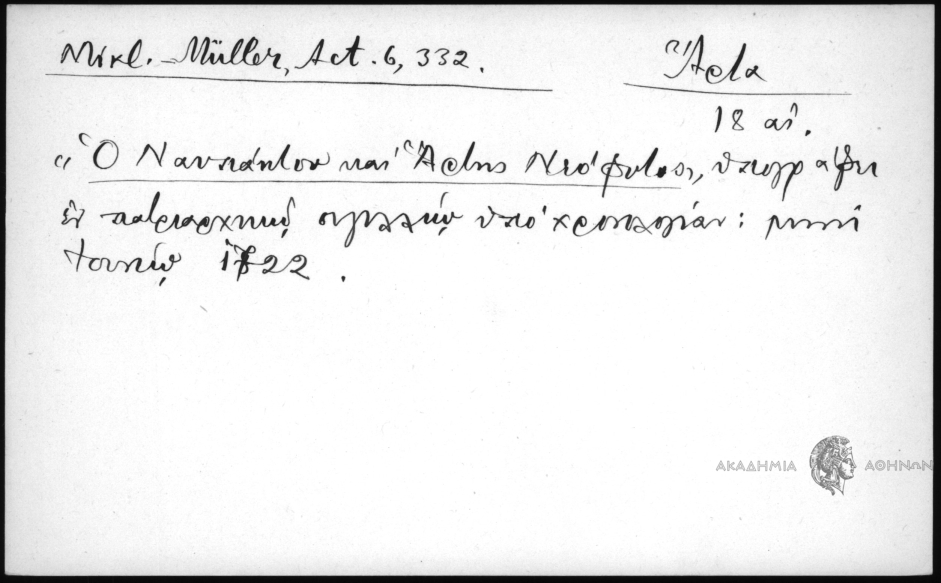 Mikl. - Müller, Act. 6, 332.
Ἄρτα
18 αἰ.
"Ὁ Ναυπάκτου καὶ Ἄρτης Νεόφυτος, ὑπογράφει
ἐν πατριαρχικῷ σιγιλλίῳ ὑπὸ χρονολογίαν: μηνὶ
Ἰουνίῳ 1722.
ΑΚΑΔΗΜΙΑ ΑΘΗΝΩΝ